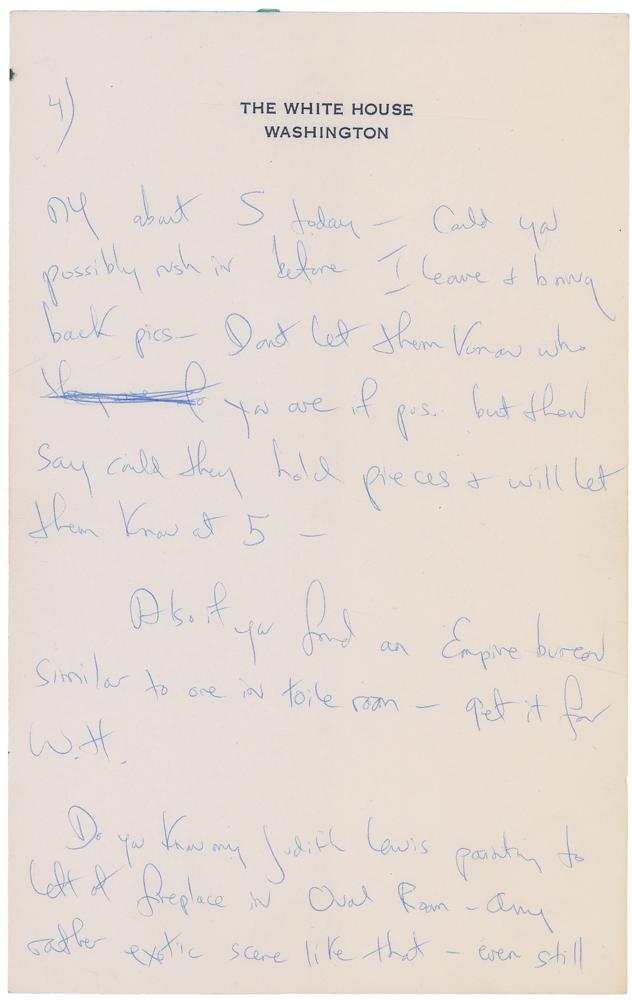 4)
THE WHITE HOUSE
WASHINGTON
NY about 5 today – Could you
possibly rush in before I leave & bring
back pics – Dont let them know who
you are if pos. but then
say could they hold pieces & will let
them know at 5 –
Also if you find an Empire bureau
similar to one in toile room – get it for
W.H.
Do you know my Judith Lewis painting to
left of fireplace in Oval Room – any
rather exotic scene like that – even still